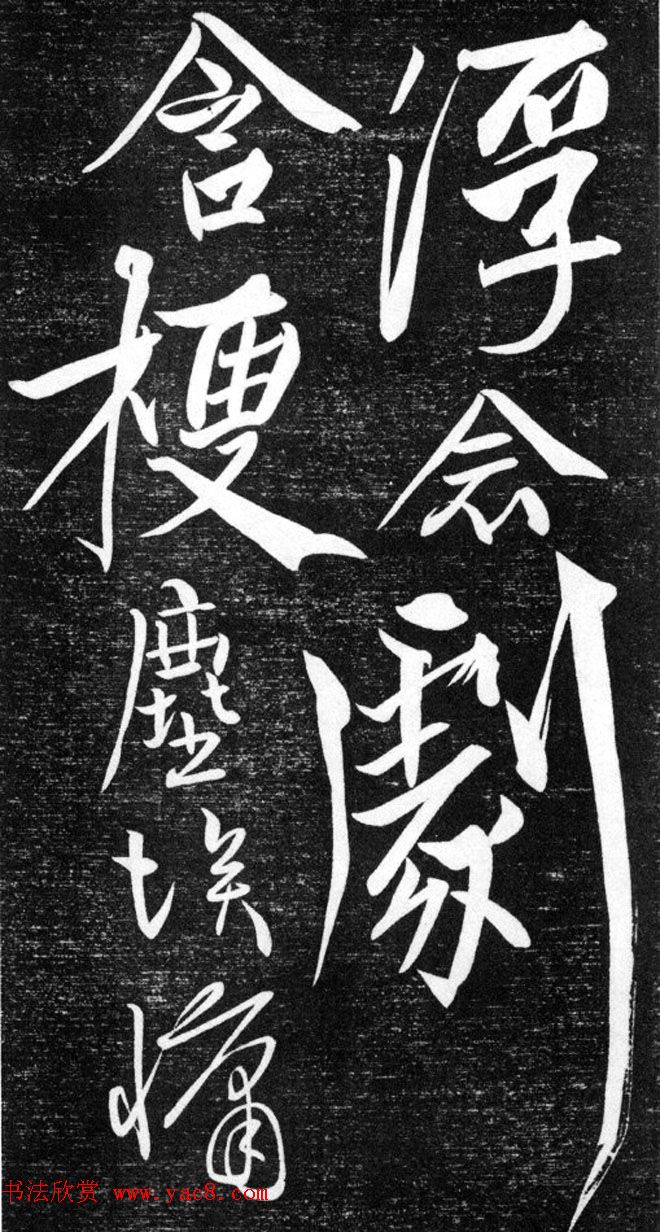 浮念劇
含梗塵埃慵
书法欣赏 www.yac8.com